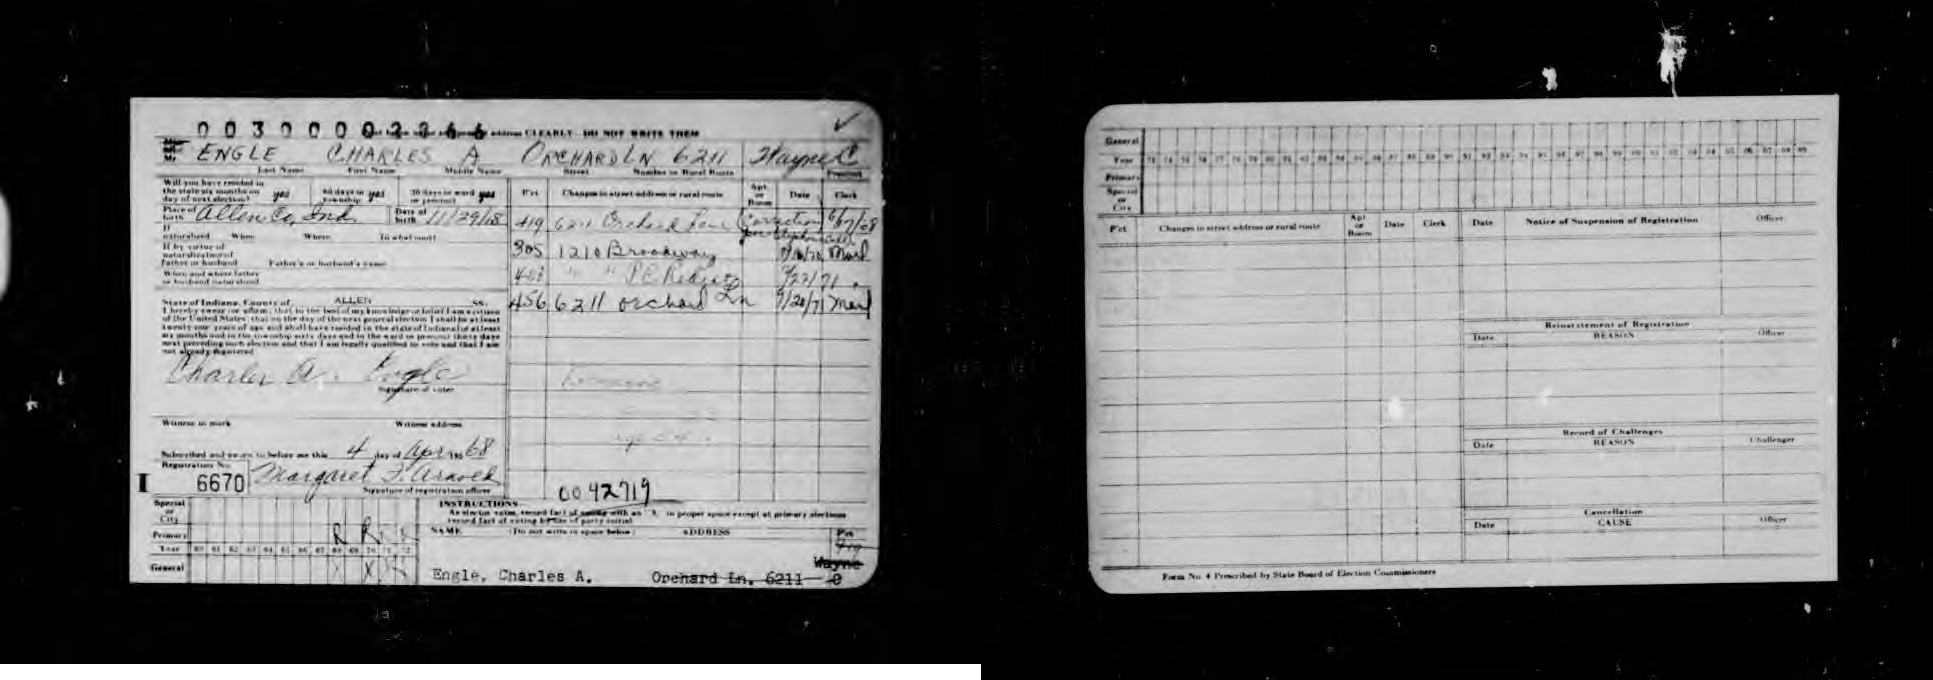 0030000 2266 address CLEARLY - DO NOT WRITE THEM
Mr. ENGLE CHARLES A ORCHARD LN 6211 Wayne C
Last Name First Name Middle Name Street Number or Rural Route Precinct
Will you have resided in the state six months on day of next election? yes 60 days in township yes 30 days in ward or precinct yes
Place of birth Allen Co, Ind. Date of birth 11/29/18
If naturalized When Where In what court
If by virtue of naturalization of Father or husband Father's or husband's name
When and where father or husband naturalized
State of Indiana, County of ALLEN SS.
I hereby swear (or affirm) that to the best of my knowledge or belief I am a citizen
of the United States; that on the day of the next general election I shall be at least
twenty-one years of age and shall have resided in the state of Indiana at least
six months and in the township sixty days and in the ward or precinct thirty days
next preceding such election and that I am legally qualified to vote and that I am
not already registered
Charles A. Engle
Signature of voter
Witness to mark Witness address
Subscribed and sworn to before me this 4 day of Apr 1968
Registration No.
I 6670 Margaret F.
Signature of registration officer
P'ct Changes in street address or rural route Apt. or Room Date Clerk
419 6211 Orchard Lane Correction
305 1210 Broadway Mail
" " P.C. 71
456 6211 Orchard Ln 9/20/71 Mail
0042719
Special or City
Primary R R
Year 60 61 62 63 64 65 66 67 68 69 70 71 72
General X X
INSTRUCTIONS
As elector votes, record fact of voting with an "X" in proper space except at primary elections
record fact of voting by use of party initial
NAME (Do not write in space below) ADDRESS P'ct
419
Wayne
Engle, Charles A. Orchard Ln. 6211
General
Year 73 74 75 76 77 78 79 80 81 82 83 84 85 86 87 88 89 90 91 92 93 94 95 96 97 98 99 00 01 02 03 04 05 06 07 08 09
Primary
Special or City
P'ct Changes in street address or rural route Apt or Room Date Clerk
Date Notice of Suspension of Registration Officer
Reinstatement of Registration
Date REASON Officer
Record of Challenges
Date REASON Challenger
Cancellation
Date CAUSE Officer
Form No. 4 Prescribed by State Board of Election Commissioners